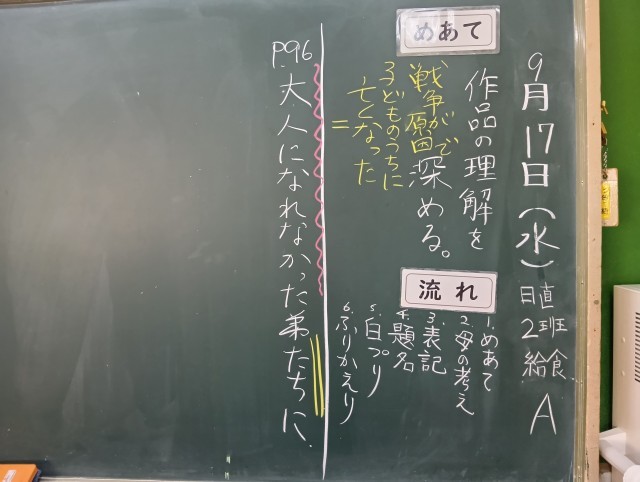 9月17日(水)
日直 2班
給食 A
めあて
作品の理解を
深める。
流れ
1.めあて
2.母の考え
3.表記
4.題名
5.白プリ
6.ふりかえり
戦争が原因で
子どものうちに
亡くなった
=
P.96 大人になれなかった弟たちに.